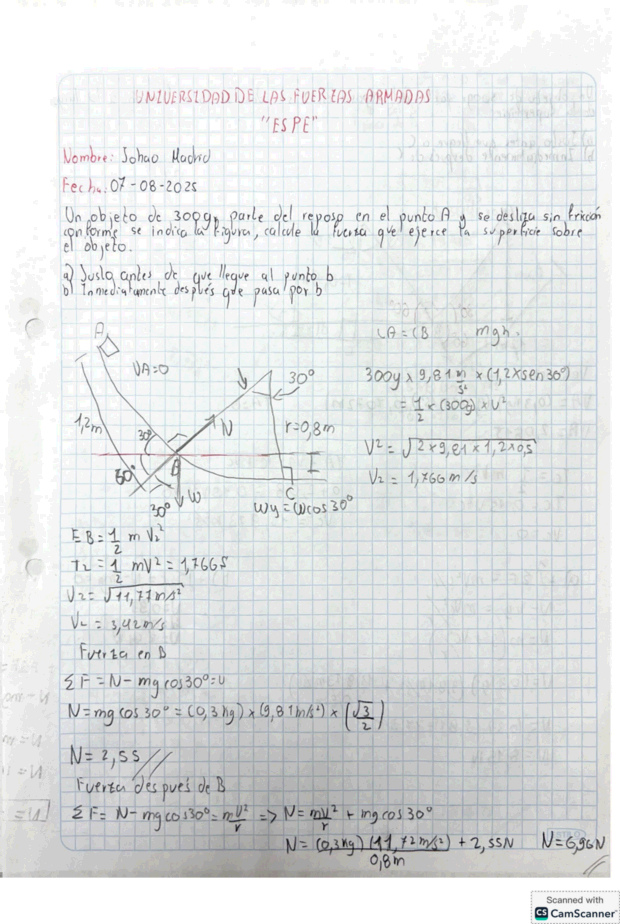 UNIVERSIDAD DE LAS FUERZAS ARMADAS
"ESPE"
Nombre: Johao Madrid
Fecha: 07-08-2025
Un objeto de 300g, parte del reposo en el punto A y se desliza sin fricción
conforme se indica la figura, calcule la fuerza que ejerce la superficie sobre
el objeto.
a) Justo antes de que llegue al punto b
b) Inmediatamente después que pasa por b
A
VA=0
1,2m
30°
30°
30°
B
W
N
30°
r=0,8m
I
C
Wy=Wcos30°
mgh.
300g x 9,81 m/s² x (1,2xsen30°)
= 1/2 x (300g) x V²
V² = √2x9,81x1,2x0,5
V₂ = 1,766 m/s
EB = 1/2 m V₂²
T₂ = 1/2 mV² = 1,766J
V₂ = √11,77m/s²
V₂ = 3,42m/s
Fuerza en B
ΣF = N - mg cos30° = 0
N = mg cos 30° = (0,3kg) x (9,81m/s²) x (√3/2)
N = 2,55 //
Fuerza después de B
ΣF = N - mgcos30° = mV²/r => N = mV²/r + mg cos 30°
N = (0,3kg)(11,72m/s²)/0,8m + 2,55N N=6,96N
Scanned with
CS CamScanner